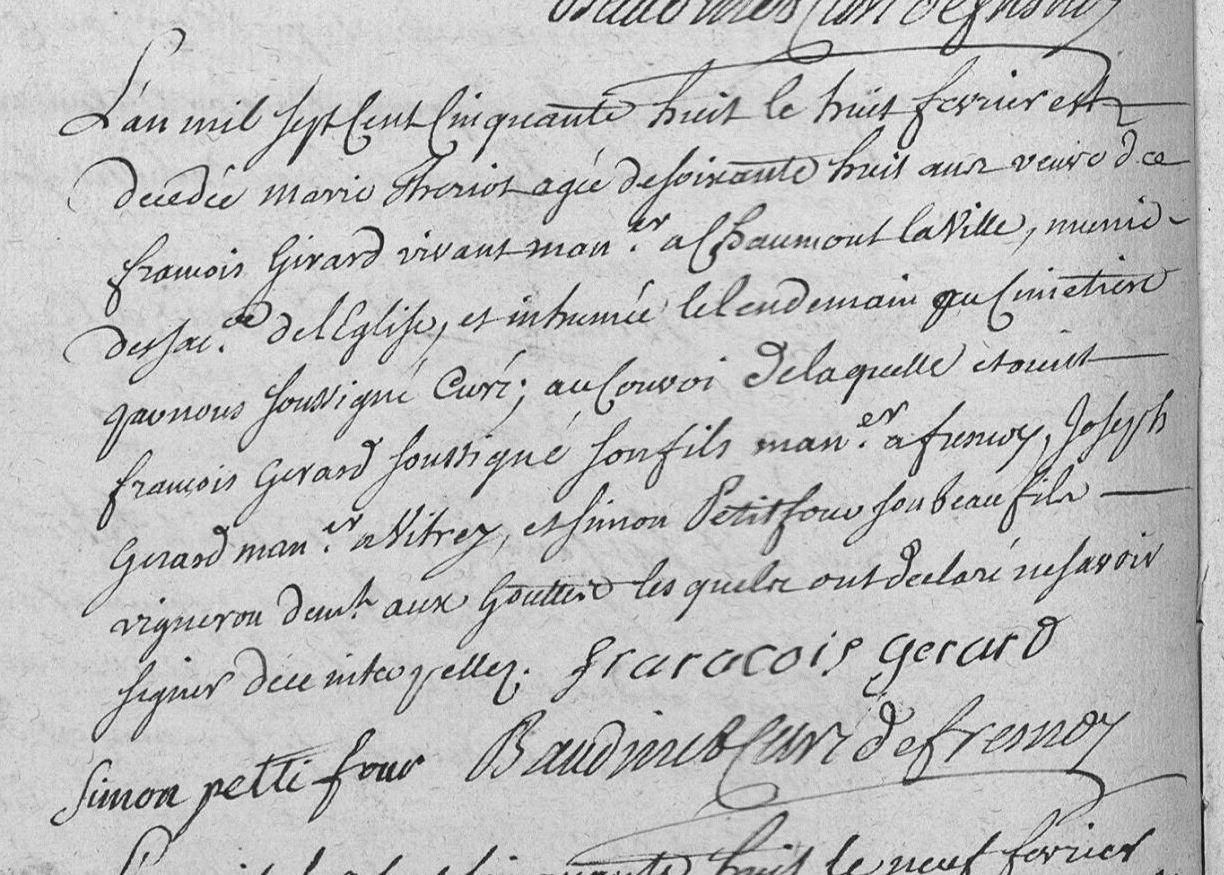 Baudinet Curé de fresnoy
L'an mil sept Cent Cinquante huit le huit fevrier est
decedée marie Theriot agée de soixante huit ans veuve de
françois Girard vivant man.er a Chaumont la Ville, munie
des sac. de l'Eglise, et inhumée le lendemain au Cimetiere
par nous soussigné Curé; au Convoi de laquelle etoient
françois Gerard soussigné son fils man.er a fresnoy, Joseph
Gerard man.er a Vitrey, et simon Petitfour son beau fils
vigneron demt aux Gouttes les quels ont declaré ne savoir
signer de ce interpellez. francois gerard
simon petti four Baudinet Curé de fresnoy
huit le neuf fevrier